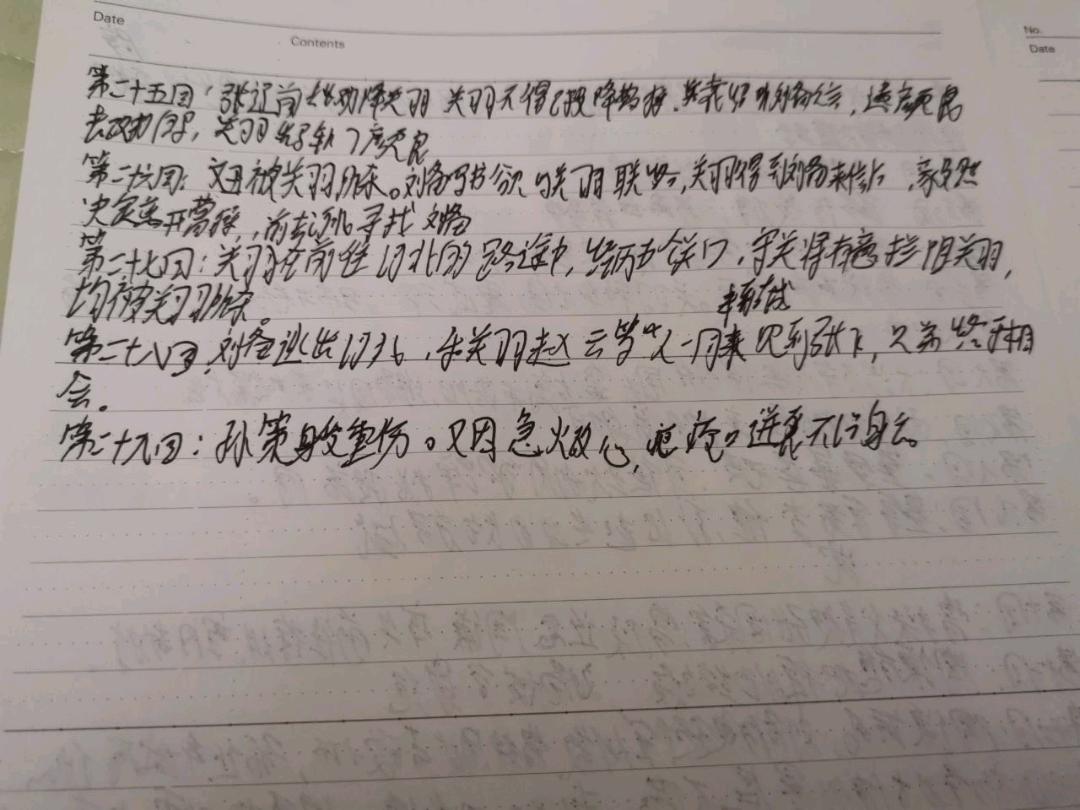 Date
Contents
No.
Date
第二十五回:张辽前去劝降关羽 关羽不得已投降曹操.袁绍听刘备言,遣颜良
去攻打,关羽斩了颜良
第二十六回:文丑被关羽所杀。刘备写书欲与关羽联络,关羽得到刘备来信后,毅然
决定离开曹操,前去寻找刘备
第二十七回:关羽在前往河北的路途中,经历五关口,守关将有意拦阻关羽,
均被关羽所杀。
第二十八回,刘备逃出河北,和关羽赵云等人一同来见到张飞,兄弟终于相
会。
第二十九回:孙策身受重伤。又因急火攻心,疮口迸裂不治身亡。